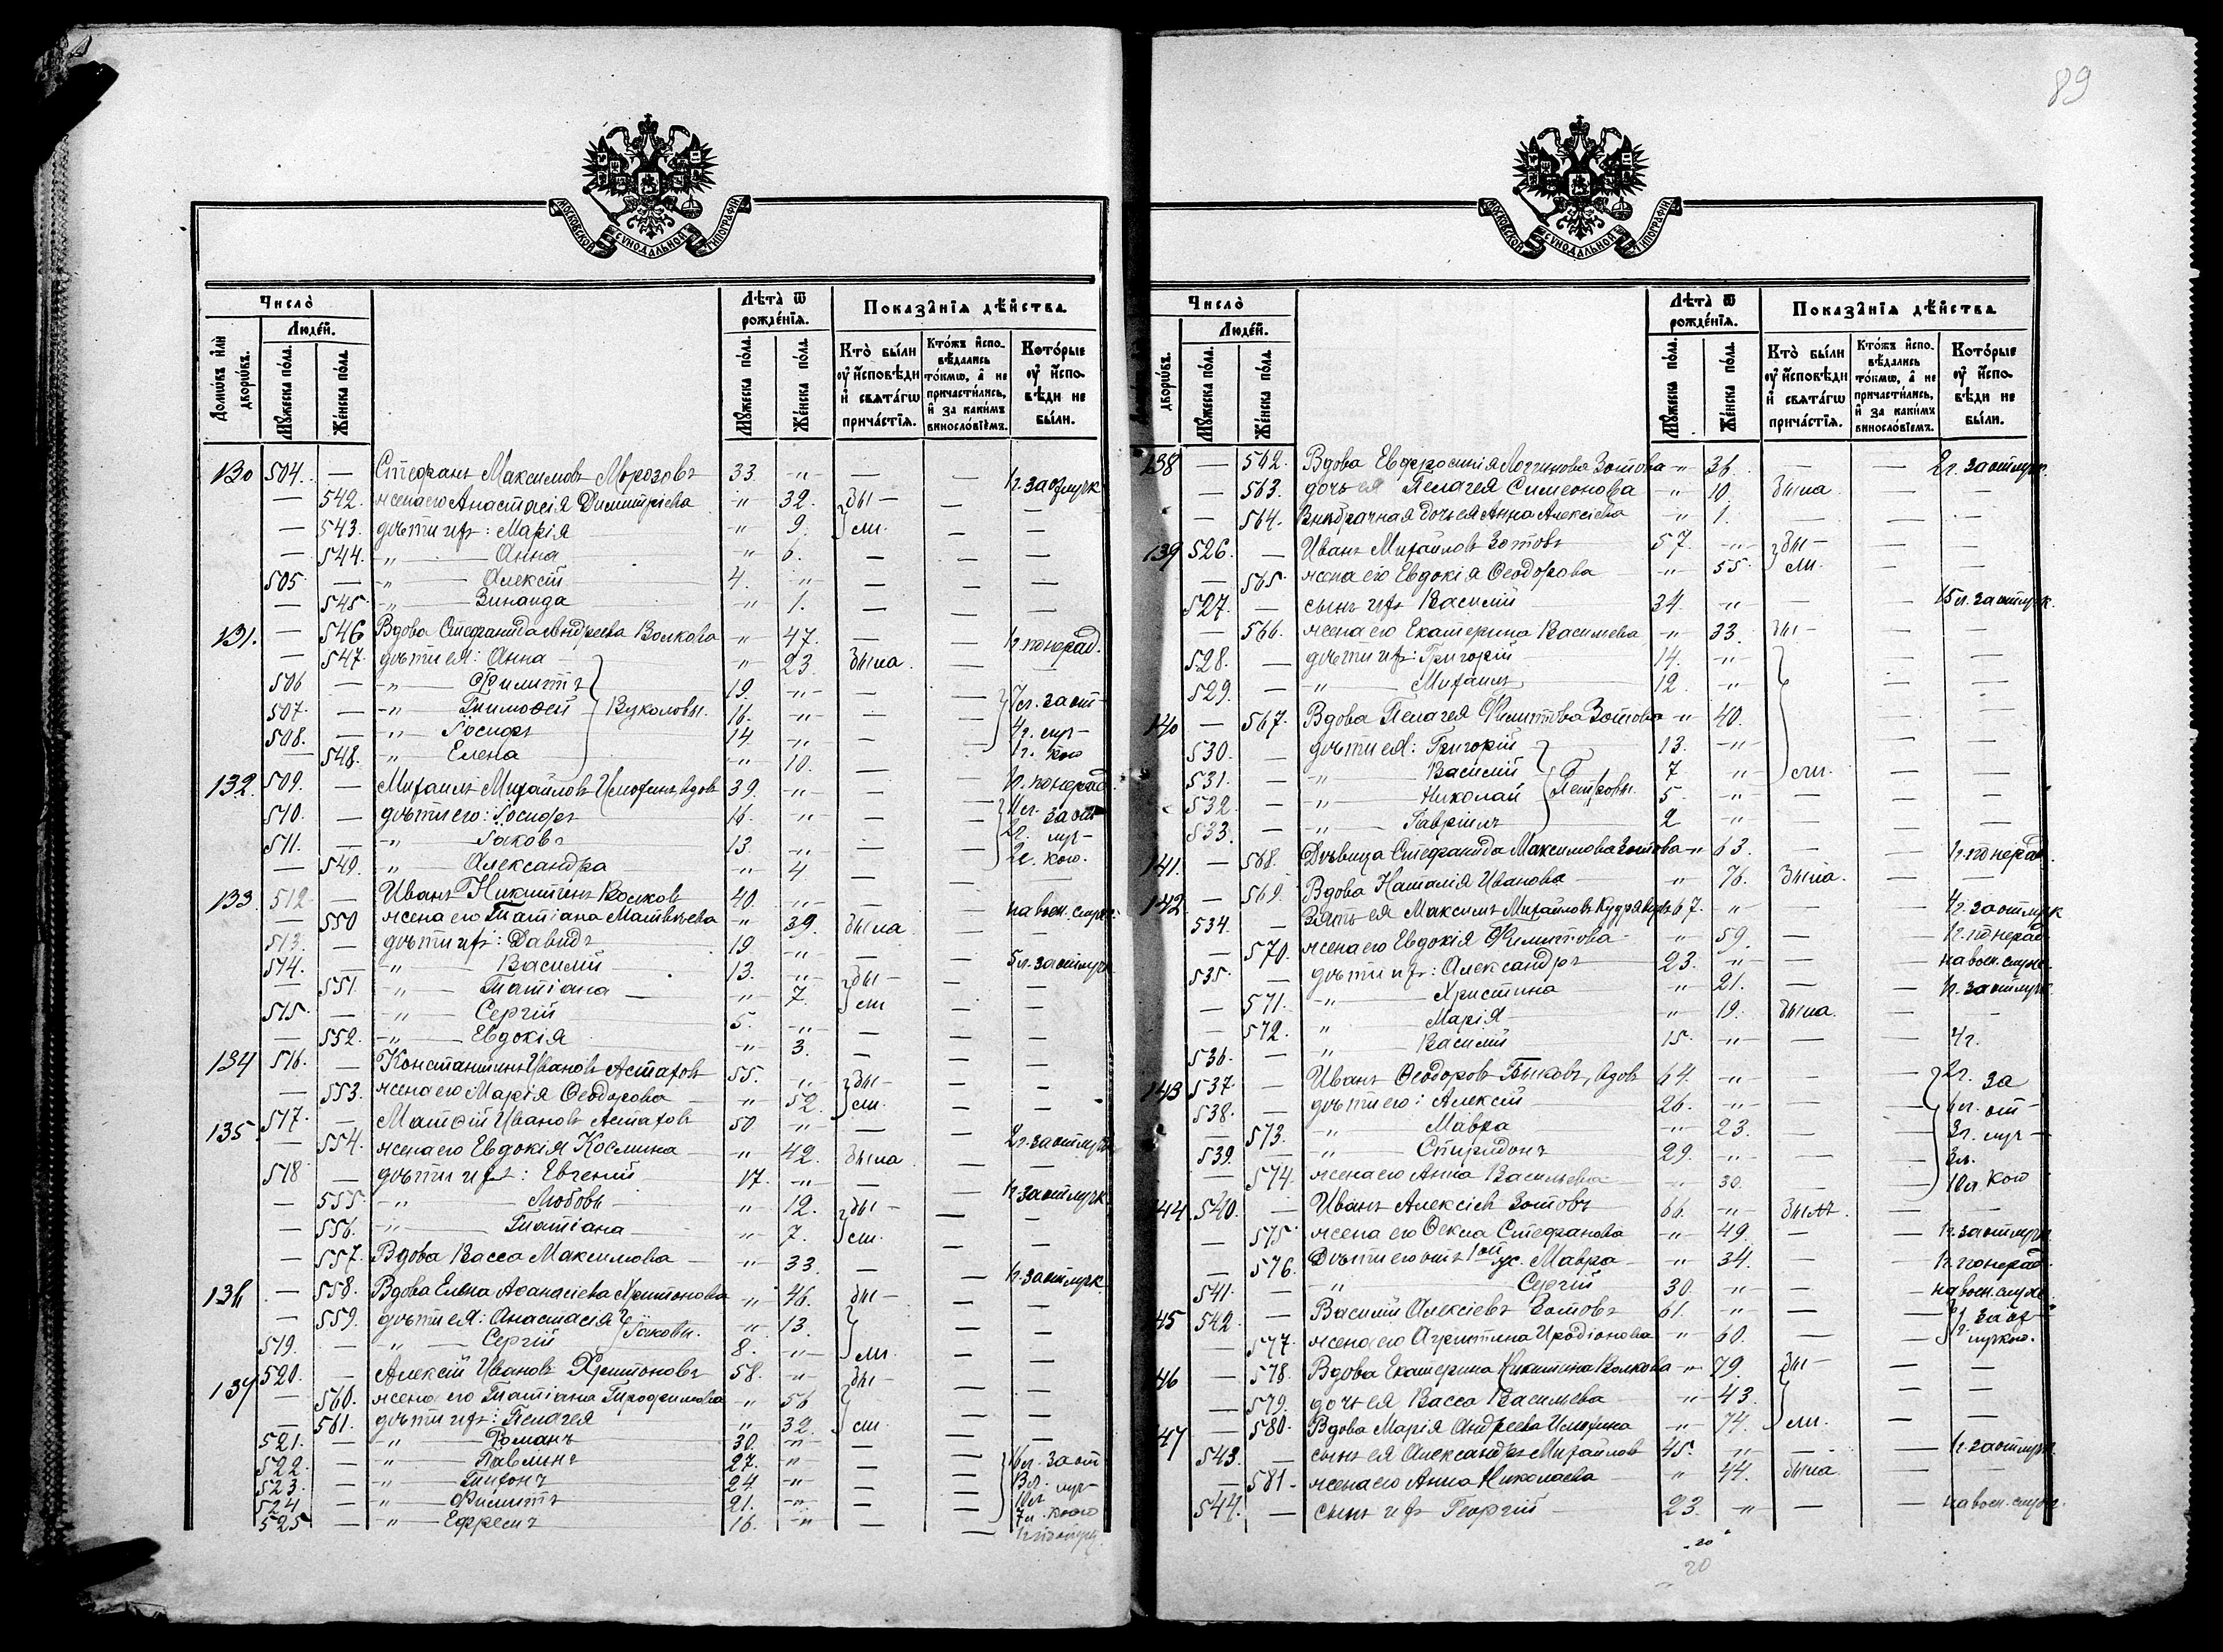 МОСКОВСКОЙ СѴНОДАЛЬНОЙ ТИПОГРАФІИ
Число̀
Людѣ́й.
Домѡ́въ и҆лѝ дворѡ́въ.
Мꙋ́жеска по́ла.
Же́нска по́ла.
Лѣ́та ѿ рожде́нїѧ.
Мꙋ́жеска по́ла.
Же́нска по́ла.
Показа̑нїѧ дѣ́йства.
Кто̀ бы́ли оу҆ и҆спо́вѣди и҆ свѧта́гѡ прича́стїѧ.
Кто́жъ и҆спо-вѣ́дались то́кмѡ, а҆ не причасти́лись, и҆ за каки́мъ винословїемъ.
Кото́рые оу҆ и҆спо-вѣди не бы́ли.
130 504. — Стефанъ Максимовъ Морозовъ 33. -"- — —
— 542. жена его Анастасія Димитріева " 32. бы — —
— 543. дѣти ихъ: Марія " 9. ли — —
— 544. -"- Анна -"- 6. — — —
505 — -"- Алексій 4. -"- — — —
— 545. -"- Зинаида -"- 1. — — —
131. — 546 Вдова Стефанида Андреева Волкова -"- 47. — — 1г. по нерад.
— 547. дѣти ея: Анна " 23. была. — —
506 — -"- Филиппъ 19. -"- — — 7л. за от-
507. — -"- Тимоѳей Вуколовы. 16. -"- — — 4г. луч-
508. — -"- Іосифъ 14. -"- — — 1г. кою
— 548. -"- Елена -"- 10. — —
132. 509. — Михаилъ Михайловъ вдовъ 39. -"- — — 1г. по нерад.
510. — дѣти его: Іосифъ 16. -"- — — за от
511. — -"- Іаковъ 13. -"- — — 2г. луч-
— 549. " Александра -"- 4 — — 2г. кою.
133. 512 — Иванъ Никитинъ Волковъ 40. -"- — — на воен. служ.
— 550 жена его Татіана Матвѣева -"- 39. была — —
513. — дѣти ихъ: Давидъ 19. -"- — — 5л. за отлучк
514. — -"- Василій 13. -"- бы — — —
— 551. -"- Татіана -"- 7. ли — —
515. — -"- Сергій 5. -"- — — —
— 552. -"- Евдокія -"- 3. — — —
134 516. — Константинъ Ивановъ Астаховъ 55. -"- бы — — —
— 553. жена его Марія Ѳеодорова -"- 52. ли. — —
135. 517. — Матѳій Ивановъ Астаховъ 50 -"- — — 2г. за отлучк
— 554. жена его Евдокія Космина -"- 42. была — —
518 — дѣти ихъ: Евгеній 17. -"- — — 1г. за отлучк.
— 555. -"- Любовь -"- 12. бы — — —
— 556. -"- Татіана -"- 7. ли. — —
— 557. Вдова Васса Максимова -"- 33. — — 1г. за отлучк.
136 — 558. Вдова Елена Аѳанасіева Харитонова -"- 46. бы — — —
— 559. дѣти ея: Анастасія Іаковы. -"- 13. — —
519. — -"- Сергій 8. -"- ли. — —
137 520. — Алексій Ивановъ Харитоновъ 58. -"- бы — — —
— 560. жена его Татіана Трофимова -"- 56 — —
— 561. дѣти ихъ: Пелагея " 32. ли — —
521. — -"- Романъ 30. -"- — —
522. — -"- Павелинъ 27. -"- — — 16л. за от
523. — -"- Тихонъ 24 -"- — — 13л. луч-
524 — -"- Филиппъ 21. -"- — — 10л
525 — -"- Ефремъ 16. -"- — — 7л. кою
89
МОСКОВСКОЙ СѴНОДАЛЬНОЙ ТИПОГРАФІИ
Число̀
Людѣ́й.
дворѡ́въ.
Мꙋ́жеска по́ла.
Же́нска по́ла.
Лѣ́та ѿ рожде́нїѧ.
Мꙋ́жеска по́ла.
Же́нска по́ла.
Показа̑нїѧ дѣ́йства
Кто̀ бы́ли оу҆ и҆спо́вѣди и҆ свѧта́гѡ прича́стїѧ.
Кто́жъ и҆спо-вѣ́дались то́кмѡ, а҆ не причасти́лись, и҆ за каки́мъ винословїемъ.
Кото́рые оу҆ и҆спо-вѣди не бы́ли.
138 — 562. Вдова Евфросинія Логгинова Зотова -"- 36. — — 2г. за отлучк.
— 563. дочь ея Пелагея Симеонова -"- 10. была — —
— 564. Внѣбрачная дочь ея Анна Алексіева -"- 1. — — —
139 526. — Иванъ Михайловъ Зотовъ 57. -"- бы — — —
— 565. жена его Евдокія Ѳеодорова -"- 55. ли. — —
527. — сынъ ихъ Василій 34. -"- — — 15л. за отлучк.
— 566. жена его Екатерина Васильева -"- 33. бы — — —
528. — дѣти ихъ: Григорій 14. -"- — —
529. — " Михаилъ 12. -"- — —
140 — 567. Вдова Пелагея Филиппова Зотова -"- 40. — —
530. — дѣти ея: Григорій 13. -"- — —
531. — " Василій Петровы. 7. -"- ли. — —
532. — " Николай 5. -"- — — —
533. — " Гавріилъ 2 -"- — — —
141. — 568. Дѣвица Стефанида Максимова Зотова -"- 63. — — 1г. по нерад.
142 — 569. Вдова Наталія Иванова -"- 76. была. — —
534. — Зять ея Максимъ Михайловъ Кудрявцевъ 67. -"- — — 4г. за отлучк
— 570. жена его Евдокія Филиппова -"- 59. — — 1г. по нерад.
535. — дѣти ихъ: Александръ 23. -"- — — на воен. служ.
— 571. " Христина " 21. — — 1г. за отлучк.
— 572. " Марія " 19. была. — —
536. — " Василій 15. -"- — — 4г.
143 537. — Иванъ Ѳеодоровъ Быковъ, вдовъ 64. -"- — — 2г. за
538. — дѣти его: Алексій 26. -"- — — 6л. от-
— 573. " Мавра -"- 23. — — 3г. луч-
539. — " Спиридонъ 29. -"- — — 3г.
— 574. жена его Анна Васильева -"- 30. — — 10л кою
44. 540. — Иванъ Алексіевъ Зотовъ 66. -"- былъ. — —
— 575. жена его Ѳекла Стефанова -"- 49. — — 1г. за отлучк
— 576. Дѣти его отъ 1ой ж. Мавра -"- 34. — — 1г. по нерад.
541. — " Сергій 30. -"- — — на воен. служ.
45 542. — Василій Алексіевъ Зотовъ 61. -"- — — за от
— 577. жена его Агриппина Иродіонова -"- 60. — — лучкою.
46 — 578. Вдова Екатерина Никитина Волкова -"- 79. бы — — —
— 579. дочь ея Васса Васильева -"- 43. — —
47 — 580. Вдова Марія Андреева -"- 74. ли. — —
543. — сынъ ея Александръ Михайловъ 45. -"- — — 1г. за отлучк.
— 581. жена его Анна Николаева " 44. была. — —
544. — сынъ ихъ Георгій 23. -"- — — на воен. служ.
20
20